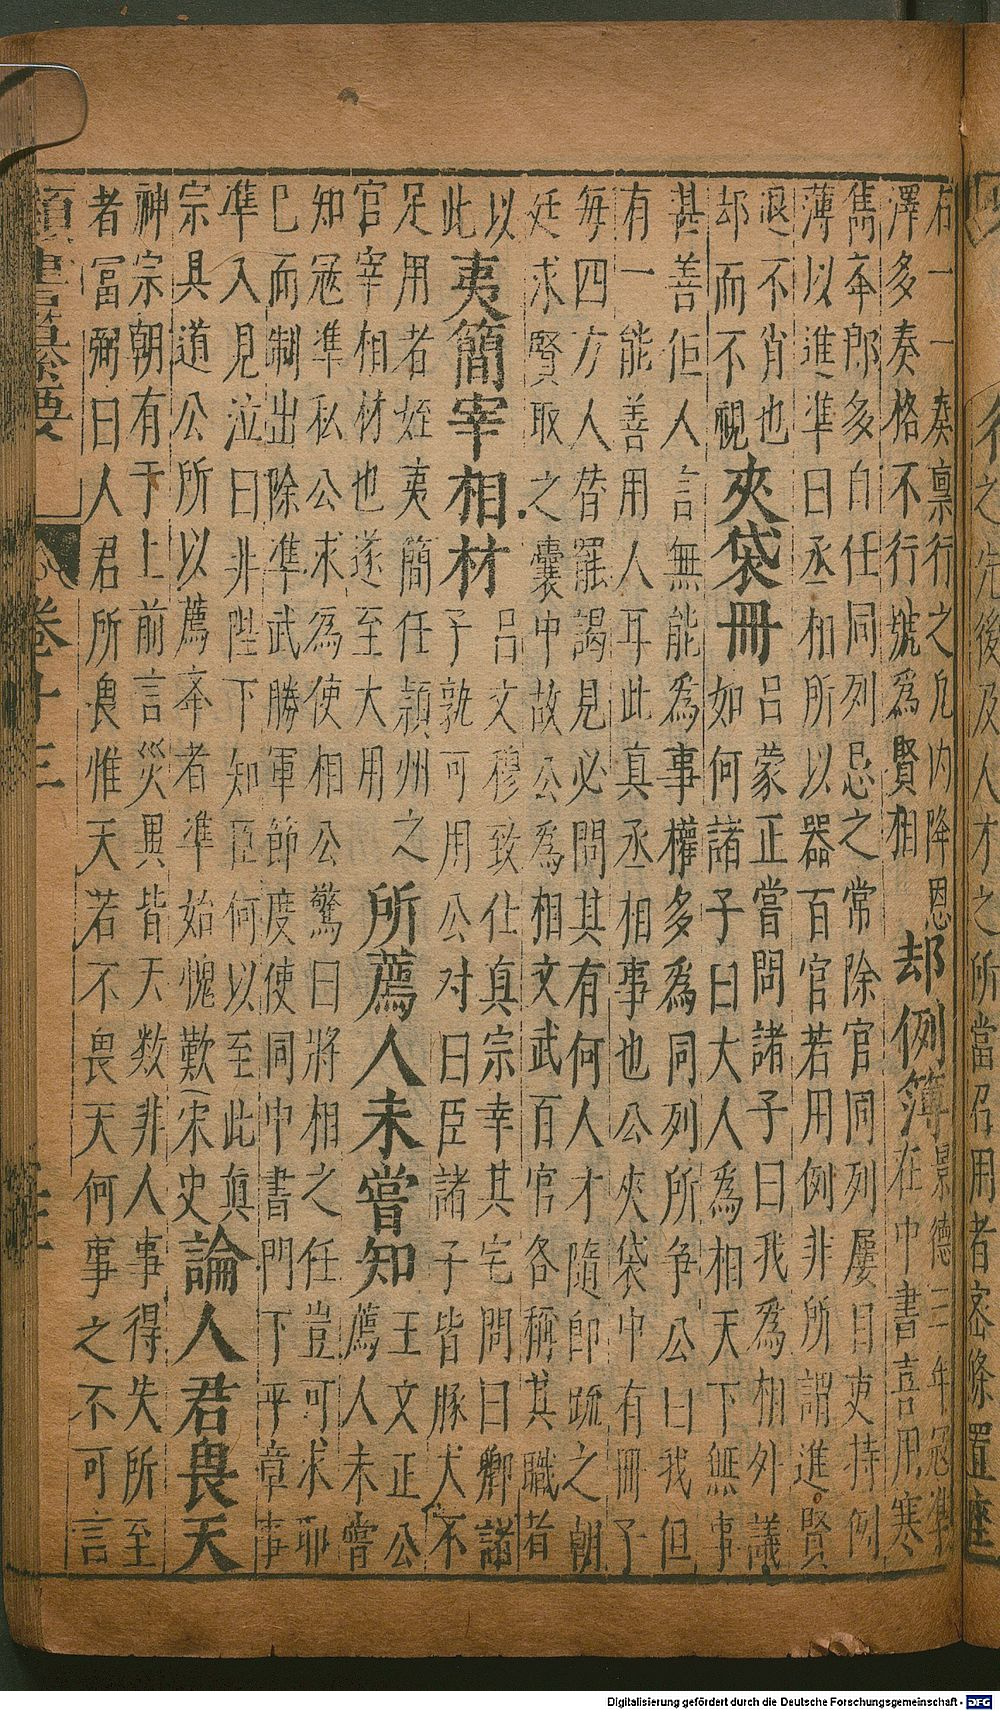 之先後及人才之所當召用者密條置座
右一一奏稟行之凡内降恩
澤多奏格不行號為賢相
却例簿
景德三年冦準
在中書喜用寒
雋奉郎多自任同列忌之常除官同列屢目吏持例
薄以進準曰丞相所以器百官若用例非所謂進賢
退不肖也
却而不視
夾袋冊
吕蒙正嘗問諸子曰我為相外議
如何諸子曰大人為相天下無事
甚善但人言無能為事權多為同列所争公曰我但
有一能善用人耳此真丞相事也公夾袋中有冊子
每四方人替罷謁見必問其有何人才隨即疏之朝
廷求賢取之囊中故公為相文武百官各稱其職者
以
此
夷簡宰相材
吕文穆致仕真宗幸其宅問曰卿諸
子孰可用公对曰臣諸子皆豚犬不
足用者姪夷簡任頴州之
官宰相材也遂至大用
所薦人未嘗知
王文正公
薦人未嘗
知冦準私公求為使相公驚曰將相之任豈可求耶
已而制出除準武勝軍節度使同中書門下平章事
準入見泣曰非陛下知臣何以至此真
宗具道公所以薦奉者準始愧歎(宋史
論人君畏天
神宗朝有于上前言災異皆天数非人事得失所至
者冨弼曰人君所畏惟天若不畏天何事之不可言
類書纂要
卷十三
Digitalisierung gefördert durch die Deutsche Forschungsgemeinschaft - DFG